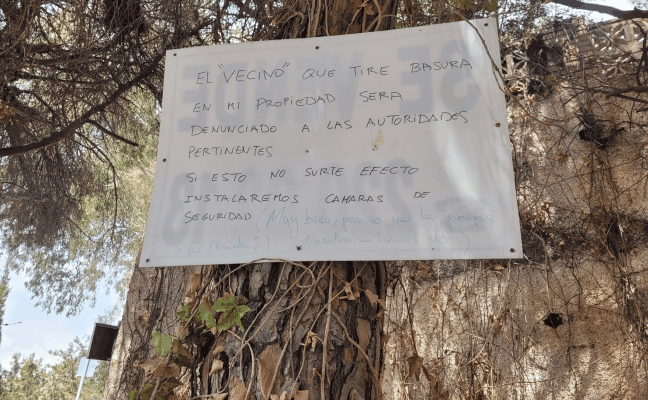 EL "VECINO" QUE TIRE BASURA
EN MI PROPIEDAD SERA
DENUNCIADO A LAS AUTORIDADES
PERTINENTES
SI ESTO NO SURTE EFECTO
INSTALAREMOS CAMARAS DE
SEGURIDAD (Muy bien, pero no la
SE VENDE